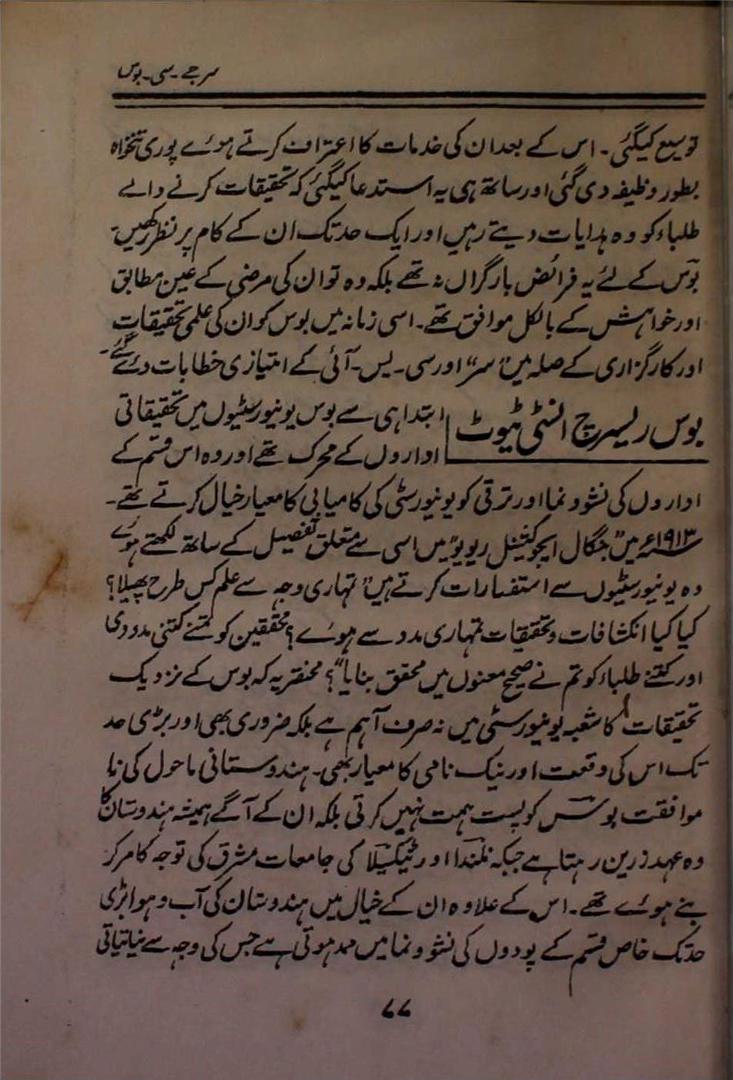 سر جے۔ سی۔ بوس
توسیع کیگئی۔ اس کے بعد ان کی خدمات کا اعتراف کرتے ہوے پوری تنخواہ
بطور وظیفہ دی گئی اور ساتھ ہی یہ استدعا کیگئی کہ تحقیقات کرنے والے
طلباء کو وہ ہدایات دیتے رہیں اور ایک حد تک ان کے کام پر نظر رکھیں۔
بوس کے لئے یہ فرائض بارگراں نہ تھے بلکہ وہ تو ان کی مرضی کے عین مطابق
اور خواہش کے بالکل موافق تھے۔ اسی زمانہ میں بوس کو ان کی علمی تحقیقات
اور کارگزاری کے صلہ میں "سر" اور سی۔ یس۔ آئی کے امتیازی خطابات دئے گئے۔
بوس ریسرچ انسٹی ٹیوٹ
ابتدا ہی سے بوس یونیورسٹیوں میں تحقیقاتی
اداروں کے محرک تھے اور وہ اس قسم کے
اداروں کی نشوونما اور ترقی کو یونیورسٹی کی کامیابی کا معیار خیال کرتے تھے۔
۱۹۱۳ء میں "بنگال ایجوکیشنل ریویو" میں اسی سے متعلق تفصیل کے ساتھ لکھتے ہوے
وہ یونیورسٹیوں سے استفسارات کرتے ہیں "تمہاری وجہ سے علم کس طرح پھیلا؟
کیا کیا انکشافات و تحقیقات تمہاری مدد سے ہوے؟ محققین کو کتنے کتنی مدد دی
اور کتنے طلباء کو تم نے صحیح معنوں میں محقق بنایا"؟ مختصر یہ کہ بوس کے نزدیک
تحقیقات کا شعبہ یونیورسٹی میں نہ صرف اہم ہے بلکہ ضروری بھی اور بڑی حد
تک اس کی وقعت اور نیک نامی کا معیار بھی۔ ہندوستانی ماحول کی نا
موافقت بوس کو پست ہمت نہیں کرتی بلکہ ان کے آگے ہمیشہ ہندوستان کا
وہ عہد زرین رہتا ہے جبکہ نلندا اور ٹیکسیلا کی جامعات مشرق کی توجہ کا مرکز
بنے ہوے تھے۔ اس کے علاوہ ان کے خیال میں ہندوستان کی آب و ہوا بڑی
حد تک خاص قسم کے پودوں کی نشوونما میں ممد ہوتی ہے جس کی وجہ سے نباتیاتی
۷۷